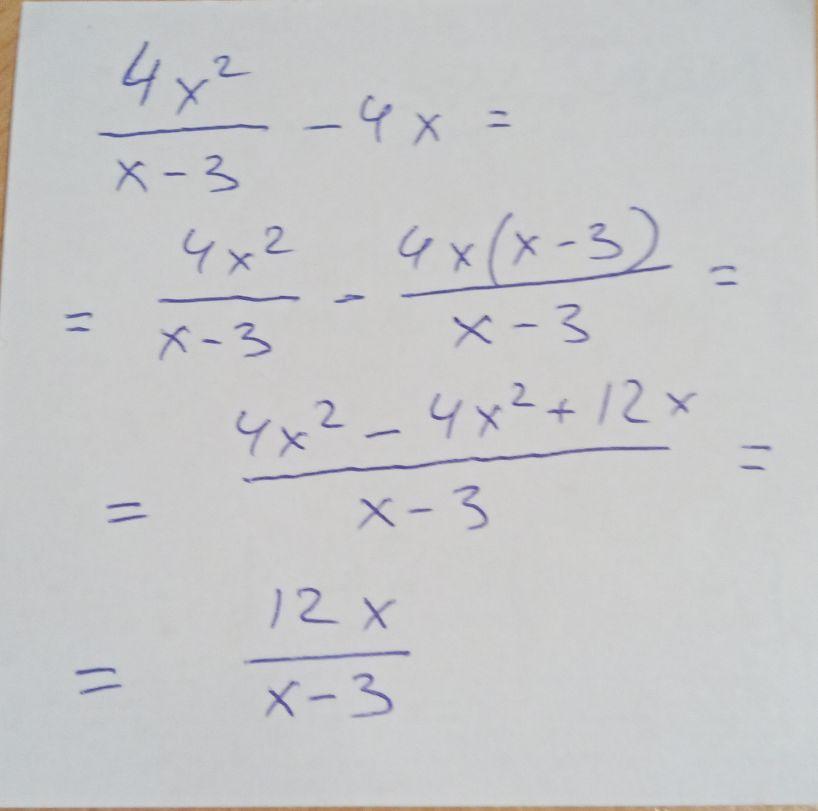 4x²/(x-3) - 4x =
= 4x²/(x-3) - 4x(x-3)/(x-3) =
= (4x² - 4x² + 12x)/(x-3) =
= 12x/(x-3)